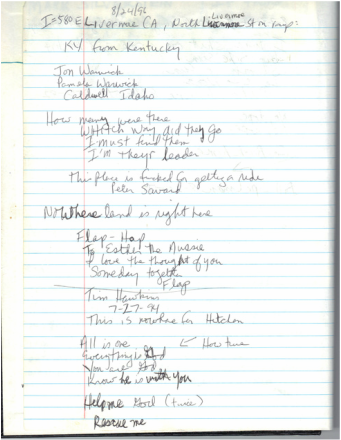 8/24/96
I-580 E Livermore CA, North Livermore st on ramp:
KY from Kentucky
Jon Warwick
Pamela Warwick
Caldwell Idaho
How many were there
Whitch way did they go
I must find them
I'm theyr leader
This place is fucked for getting a ride
Peter Savard
NoWhere land is right here
Flap-Hap
To Esther the Nurse
I love the thought of you
Someday together
Flap
Tim Hawkins
7-27-94
This is nowhare for Hitchen
All is one ← How true
Everything God
You are God
Know he is with you
Help me God (twice)
Rescue me